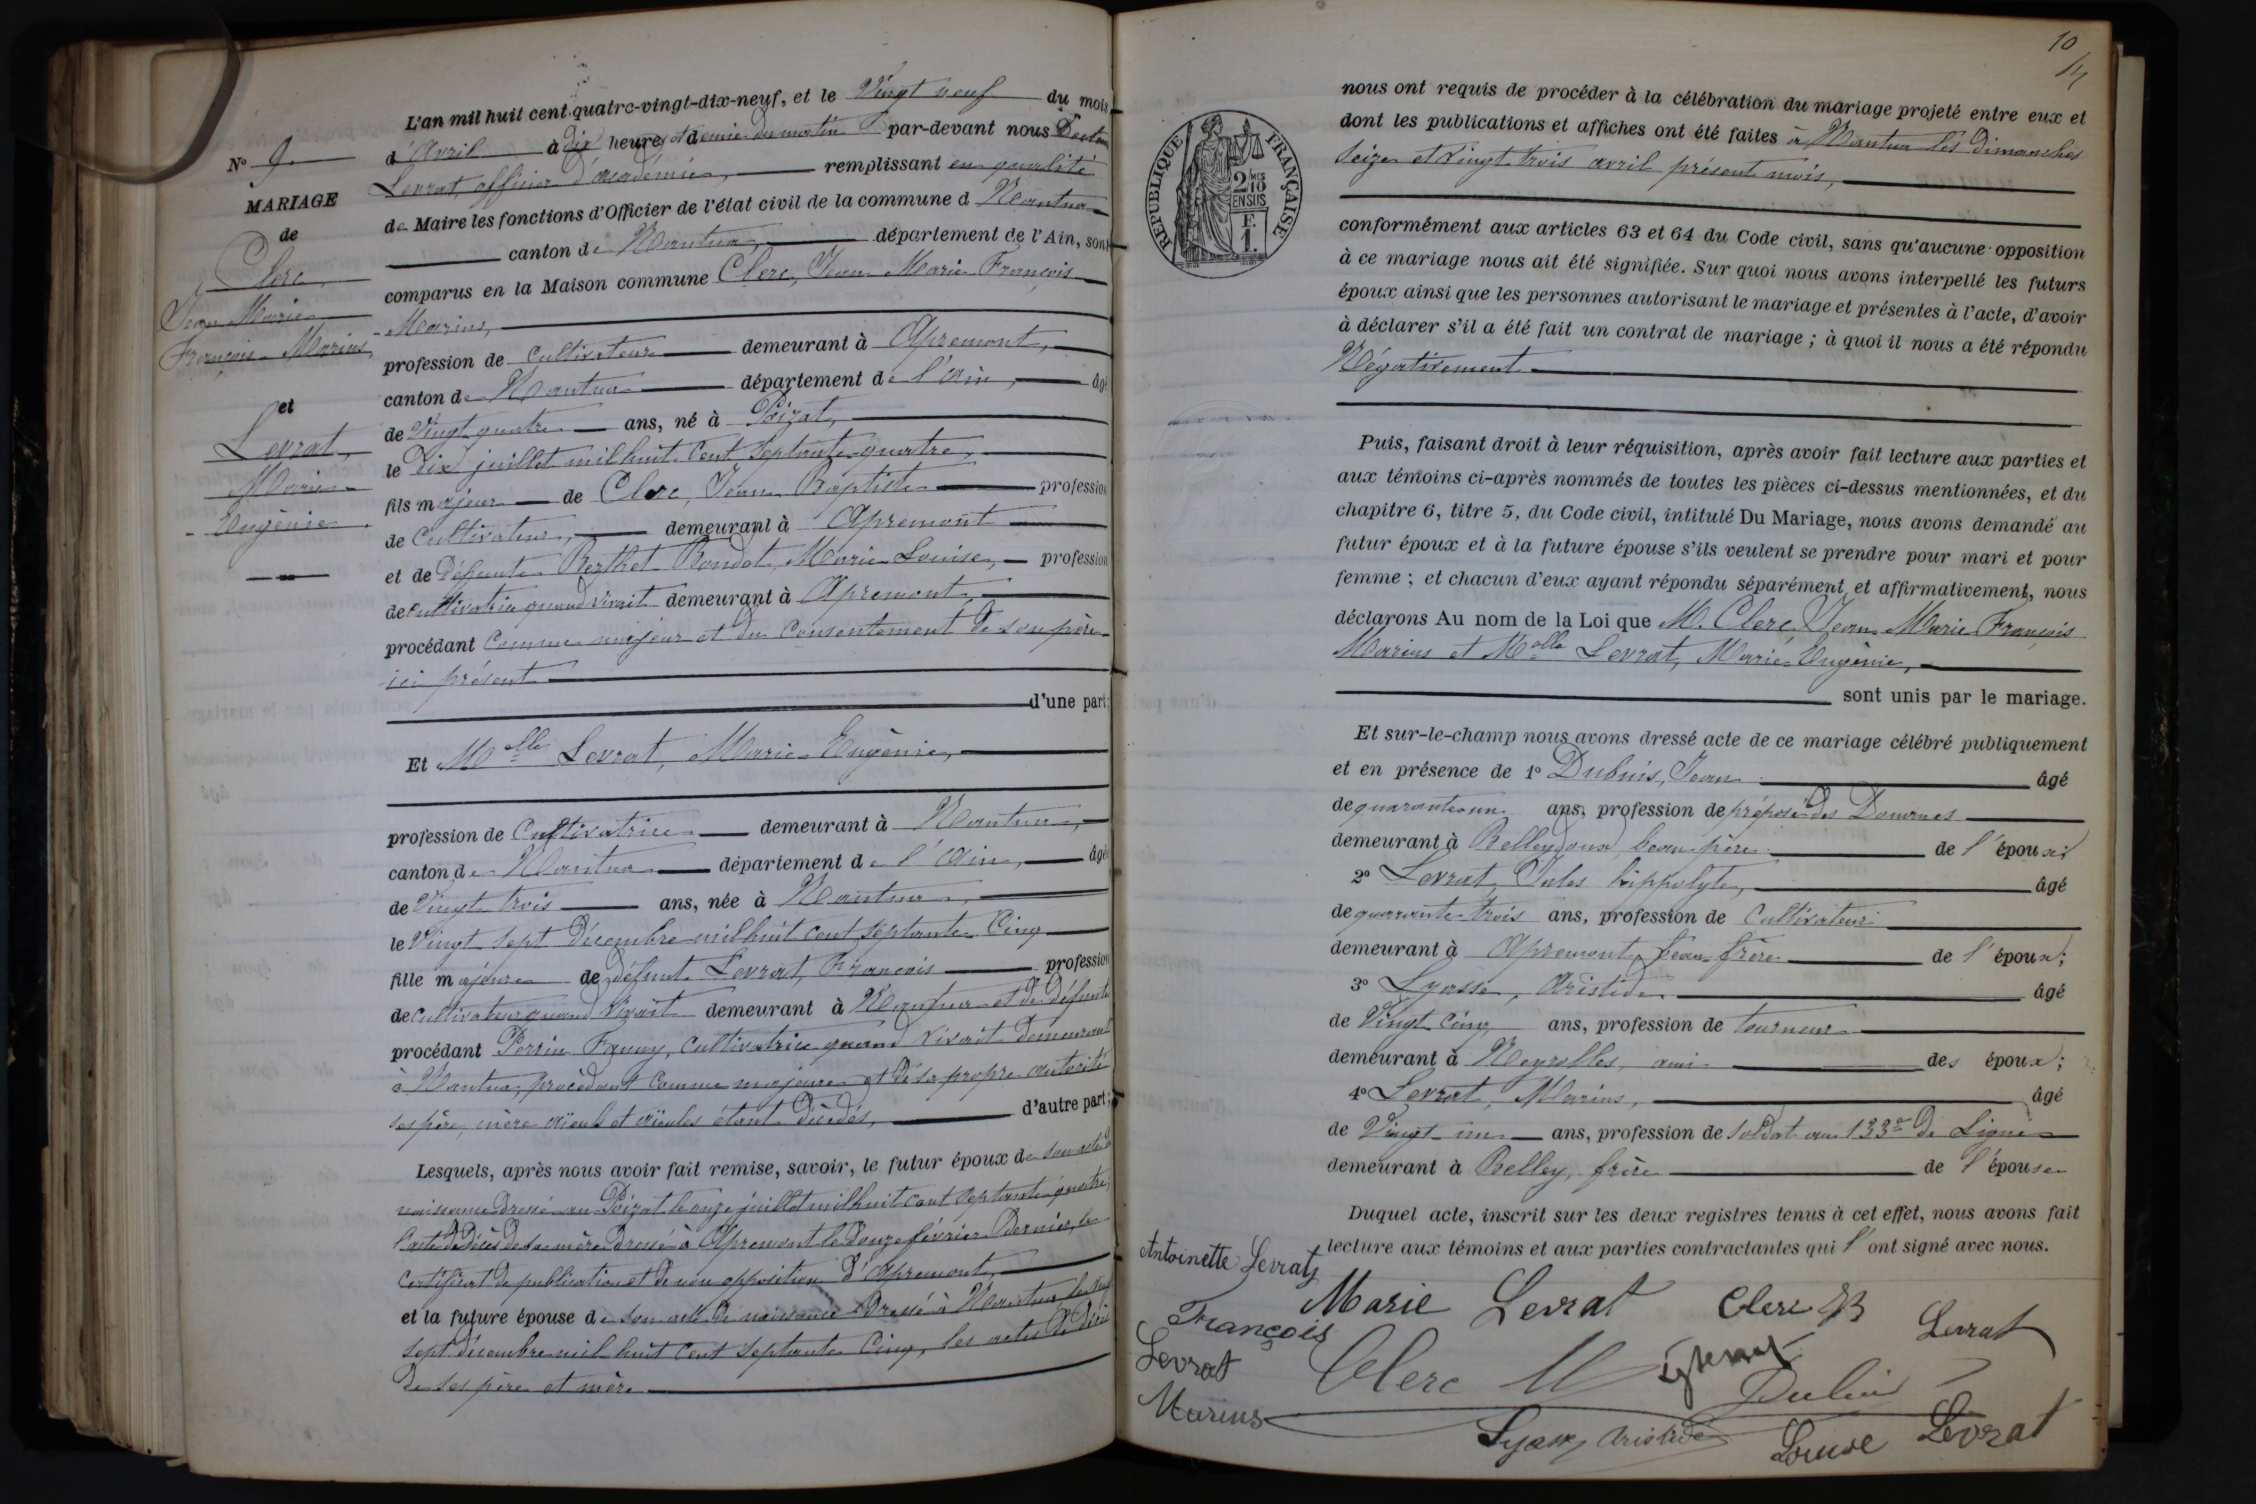 N° 9.
MARIAGE
de
Clerc,
Jean Marie
François Marius
et
Levrat,
Marie
Eugénie
L'an mil huit cent quatre-vingt-dix-neuf, et le Vingt neuf du mois
d'Avril à dix heures et demie du matin par-devant nous
Levrat, officier d'académie, remplissant en qualité
de Maire les fonctions d'Officier de l'état civil de la commune d Nantua
canton de Nantua, département de l'Ain, sont
comparus en la Maison commune Clerc, Jean Marie François
Marius,
profession de Cultivateur demeurant à Apremont,
canton de Nantua département de l'Ain, âgé
de Vingt quatre ans, né à Poizat,
le dix juillet mil huit cent septante quatre,
fils majeur de Clerc, Jean Baptiste profession
de Cultivateur, demeurant à Apremont
et de défunte Berthet Bondet, Marie Louise, profession
de cultivatrice quand vivait demeurant à Apremont,
procédant comme majeur et du consentement de son père
ici présent
d'une part;
Et Melle Levrat, Marie Eugénie,
profession de Cultivatrice demeurant à Nantua,
canton de Nantua département de l'Ain, âgée
de Vingt trois ans, née à Nantua,
le Vingt sept décembre mil huit cent septante cinq
fille majeure de défunt Levrat, François profession
de cultivateur quand vivait demeurant à Nantua et de défunte
procédant Perrin Fanny, cultivatrice quand vivait demeurant
à Nantua, procédant comme majeure et de sa propre autorité
ses père, mère aïeuls et aïeules étant décédés, d'autre part;
Lesquels, après nous avoir fait remise, savoir, le futur époux de son acte de
naissance dressé au Poizat le onze juillet mil huit cent septante quatre,
l'acte de décès de sa mère dressé à Apremont le douze février dernier, le
certificat de publication et de non opposition d'Apremont,
et la future épouse de son acte de naissance dressé à Nantua le vingt
sept décembre mil huit cent septante cinq, les actes de décès
de ses père et mère
10
RÉPUBLIQUE FRANÇAISE
2/10 MES
EN SUS
F.
1.
nous ont requis de procéder à la célébration du mariage projeté entre eux et
dont les publications et affiches ont été faites à Nantua les dimanches
seize et vingt trois avril présent mois,
conformément aux articles 63 et 64 du Code civil, sans qu'aucune opposition
à ce mariage nous ait été signifiée. Sur quoi nous avons interpellé les futurs
époux ainsi que les personnes autorisant le mariage et présentes à l'acte, d'avoir
à déclarer s'il a été fait un contrat de mariage; à quoi il nous a été répondu
Négativement
Puis, faisant droit à leur réquisition, après avoir fait lecture aux parties et
aux témoins ci-après nommés de toutes les pièces ci-dessus mentionnées, et du
chapitre 6, titre 5, du Code civil, intitulé Du Mariage, nous avons demandé au
futur époux et à la future épouse s'ils veulent se prendre pour mari et pour
femme; et chacun d'eux ayant répondu séparément et affirmativement, nous
déclarons Au nom de la Loi que M. Clerc Jean Marie François
Marius et Melle Levrat, Marie Eugénie,
sont unis par le mariage.
Et sur-le-champ nous avons dressé acte de ce mariage célébré publiquement
et en présence de 1° Dubuis, Jean âgé
de quarante un ans, profession de préposé des Douanes
demeurant à Belleydoux beau père de l'époux;
2° Levrat, Jules hippolyte, âgé
de quarante-trois ans, profession de Cultivateur
demeurant à Apremont, beau-frère de l'époux;
3° Lyasse, Aristide âgé
de Vingt cinq ans, profession de tourneur
demeurant à Neyrolles, ami des époux;
4° Levrat, Marius, âgé
de Vingt-un ans, profession de soldat au 133e de Ligne
demeurant à Belley, frère de l'épouse
Duquel acte, inscrit sur les deux registres tenus à cet effet, nous avons fait
lecture aux témoins et aux parties contractantes qui l'ont signé avec nous.
Antoinette Levrat
Marie Levrat Clerc JB Levrat
François
Levrat Clerc M Dubuis
Marius
Lyasse Aristide Louise Levrat